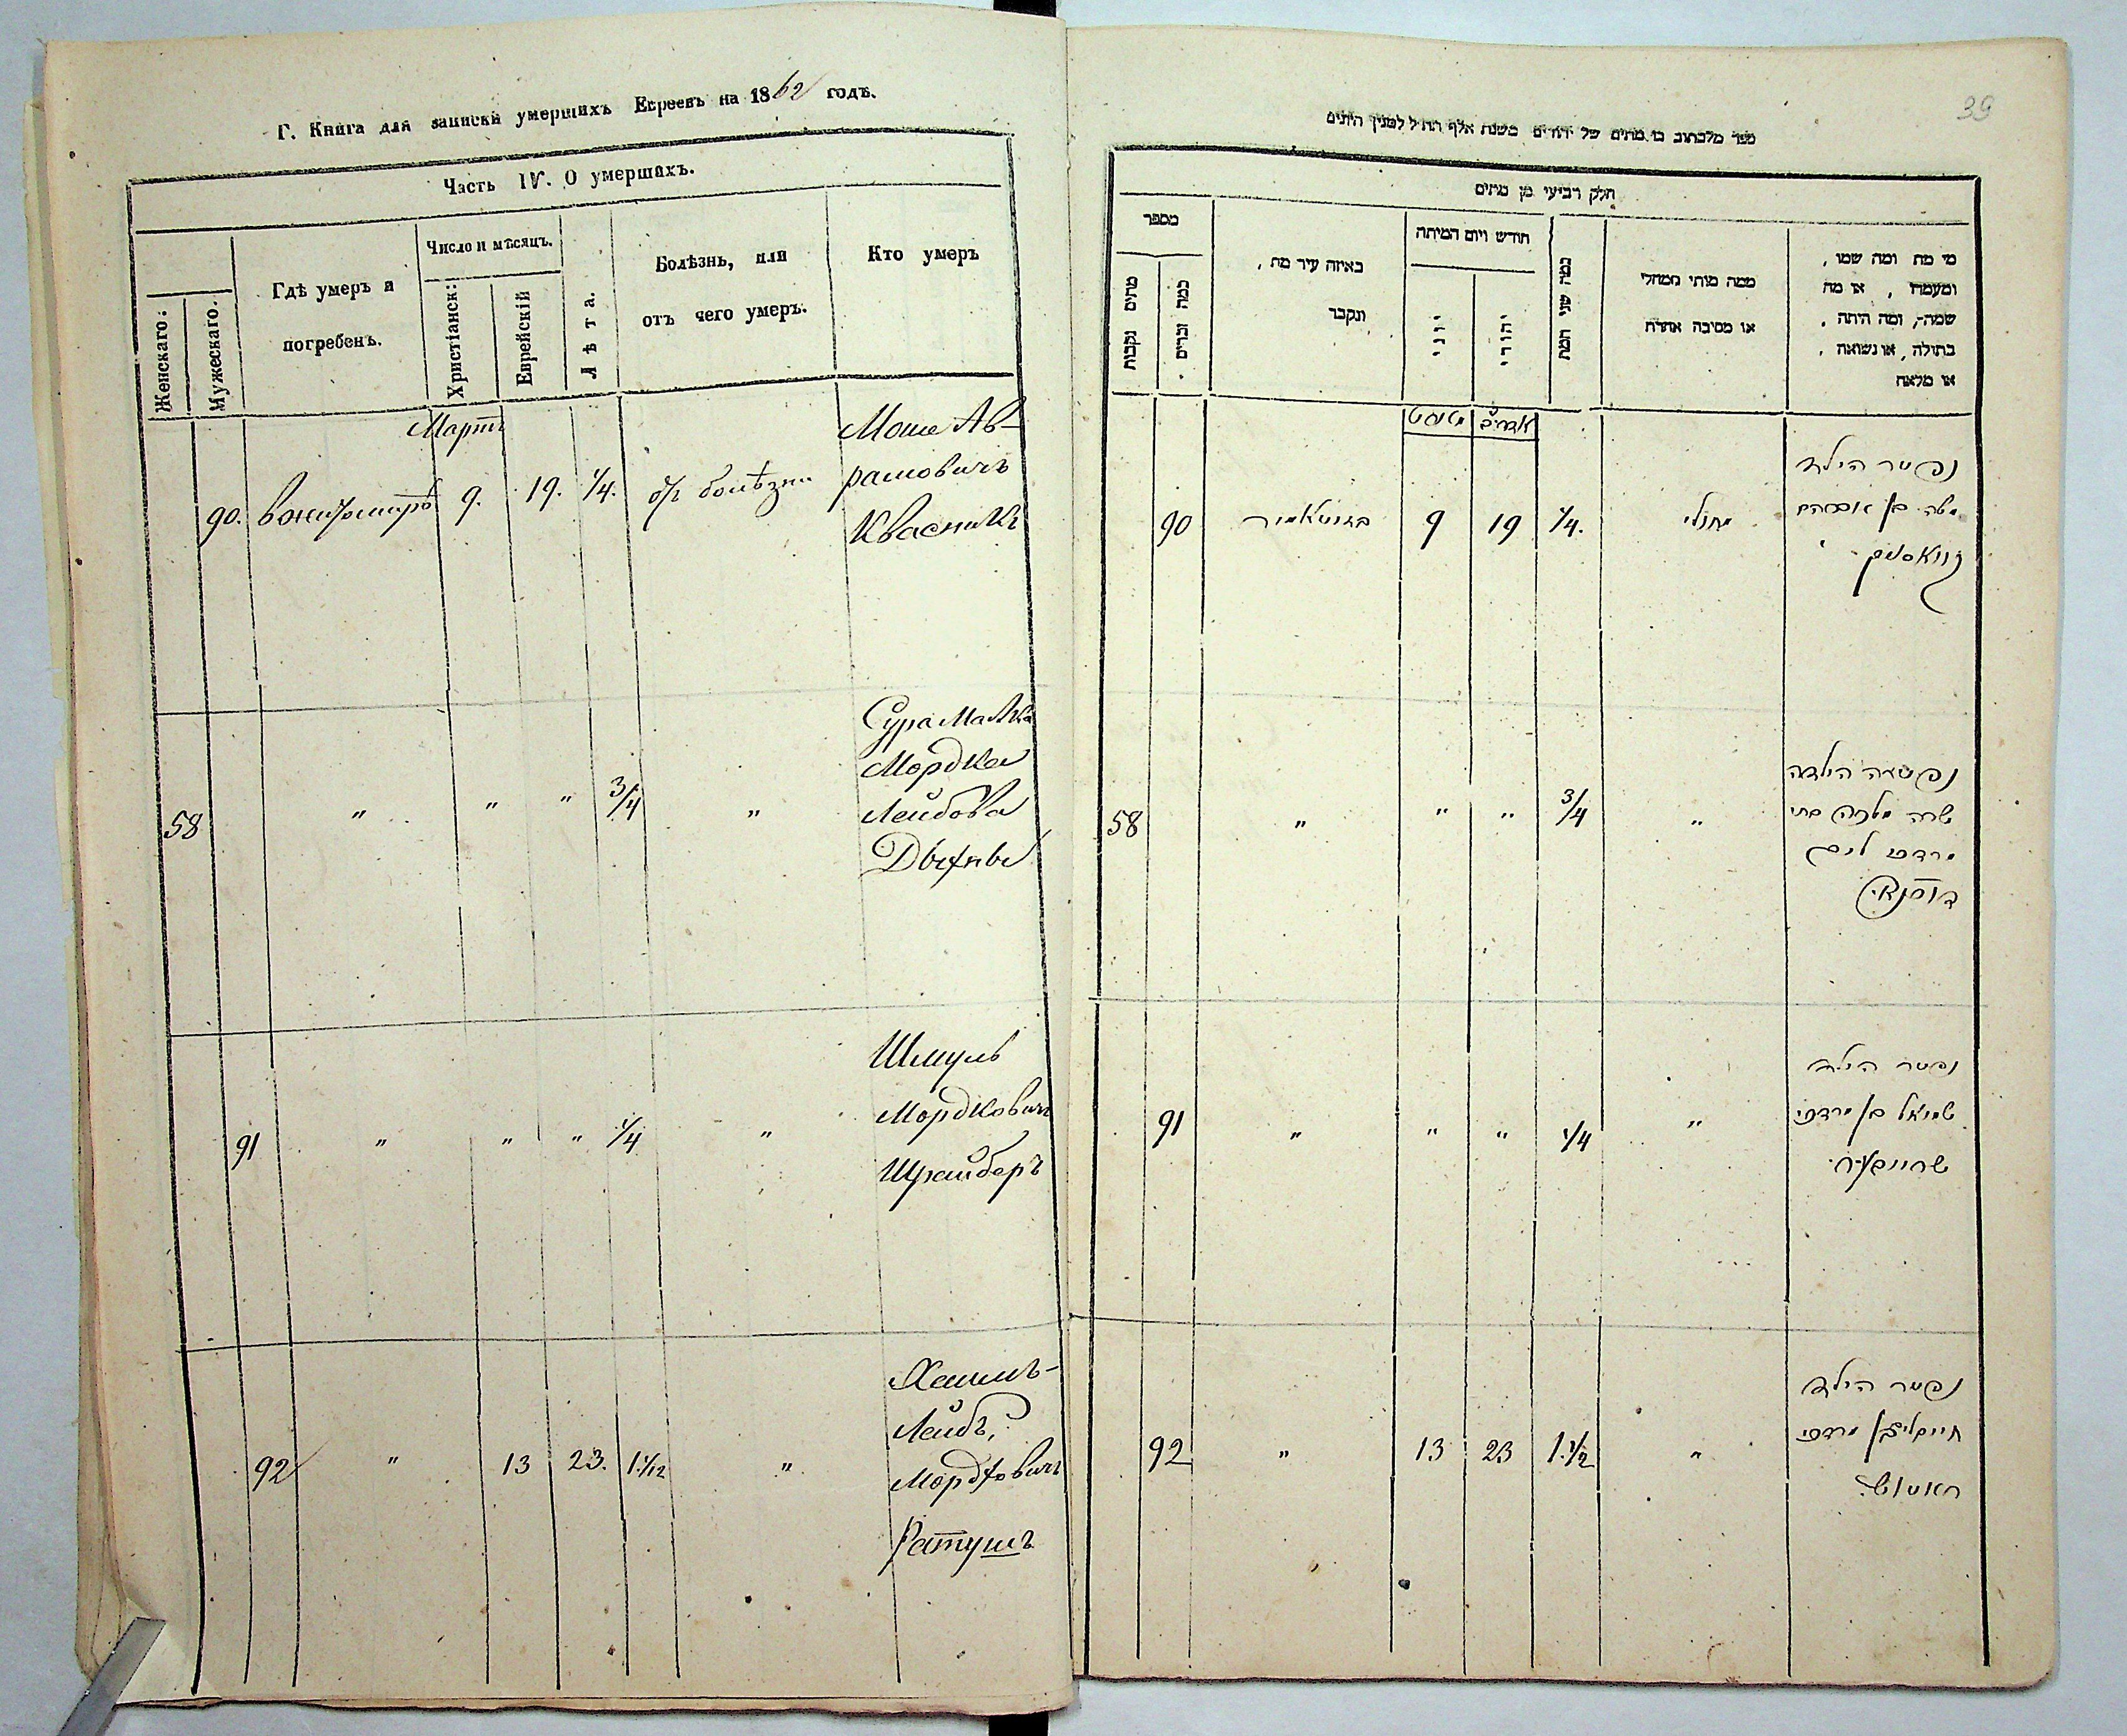 Г. Книга для записки умершихъ Евреевъ на 1862 годъ.
Часть IV. О умершихъ.
Женскаго:
Мужескаго.
Гдѣ умеръ и
погребенъ.
Число и мѣсяцъ.
Христіанск:
Еврейскій
Лѣта.
Болѣзнь, или
отъ чего умеръ.
Кто умеръ
Мартъ
90. 9. 19. 1/4. отъ болѣзни
Моше Ав-
рамовичъ
Квасникъ
58 " " " 3/4 "
Сура Малка
Мордка
Лейбова
91 " " " 1/4 "
Шмуль
Мордковичъ
Шрайберъ
92 " 13 23. 1 1/12 "
Хаимъ-
Лейбъ,
Мордковичъ
Ратушъ
39
חלק רביעי מן מתים
מספר
מתים נקבות
כמה זכרים
באיזה עיר מת,
ונקבר
חודש ויום המיתה
יוני
יהודי
כמה שני המת
ממה מותי ממחלי
או מסיבה אחרת
מי מת ומה שמו,
ומעמדו, או מה
שמה, ומה היתה,
בתולה, או נשואה,
או מלאה
90 9 19 1/4. מחולי
נפטר הילד
משה בן אברהם
קוואסניק
58 " " " 3/4 "
נפטרה הילדה
שרה מלכה בת
מרדכי ליב
91 " " " 1/4 "
נפטר הילד
שמואל בן מרדכי
שרייבער
92 " 13 23 1 1/2 "
נפטר הילד
חיים ליב בן מרדכי
ראטוש